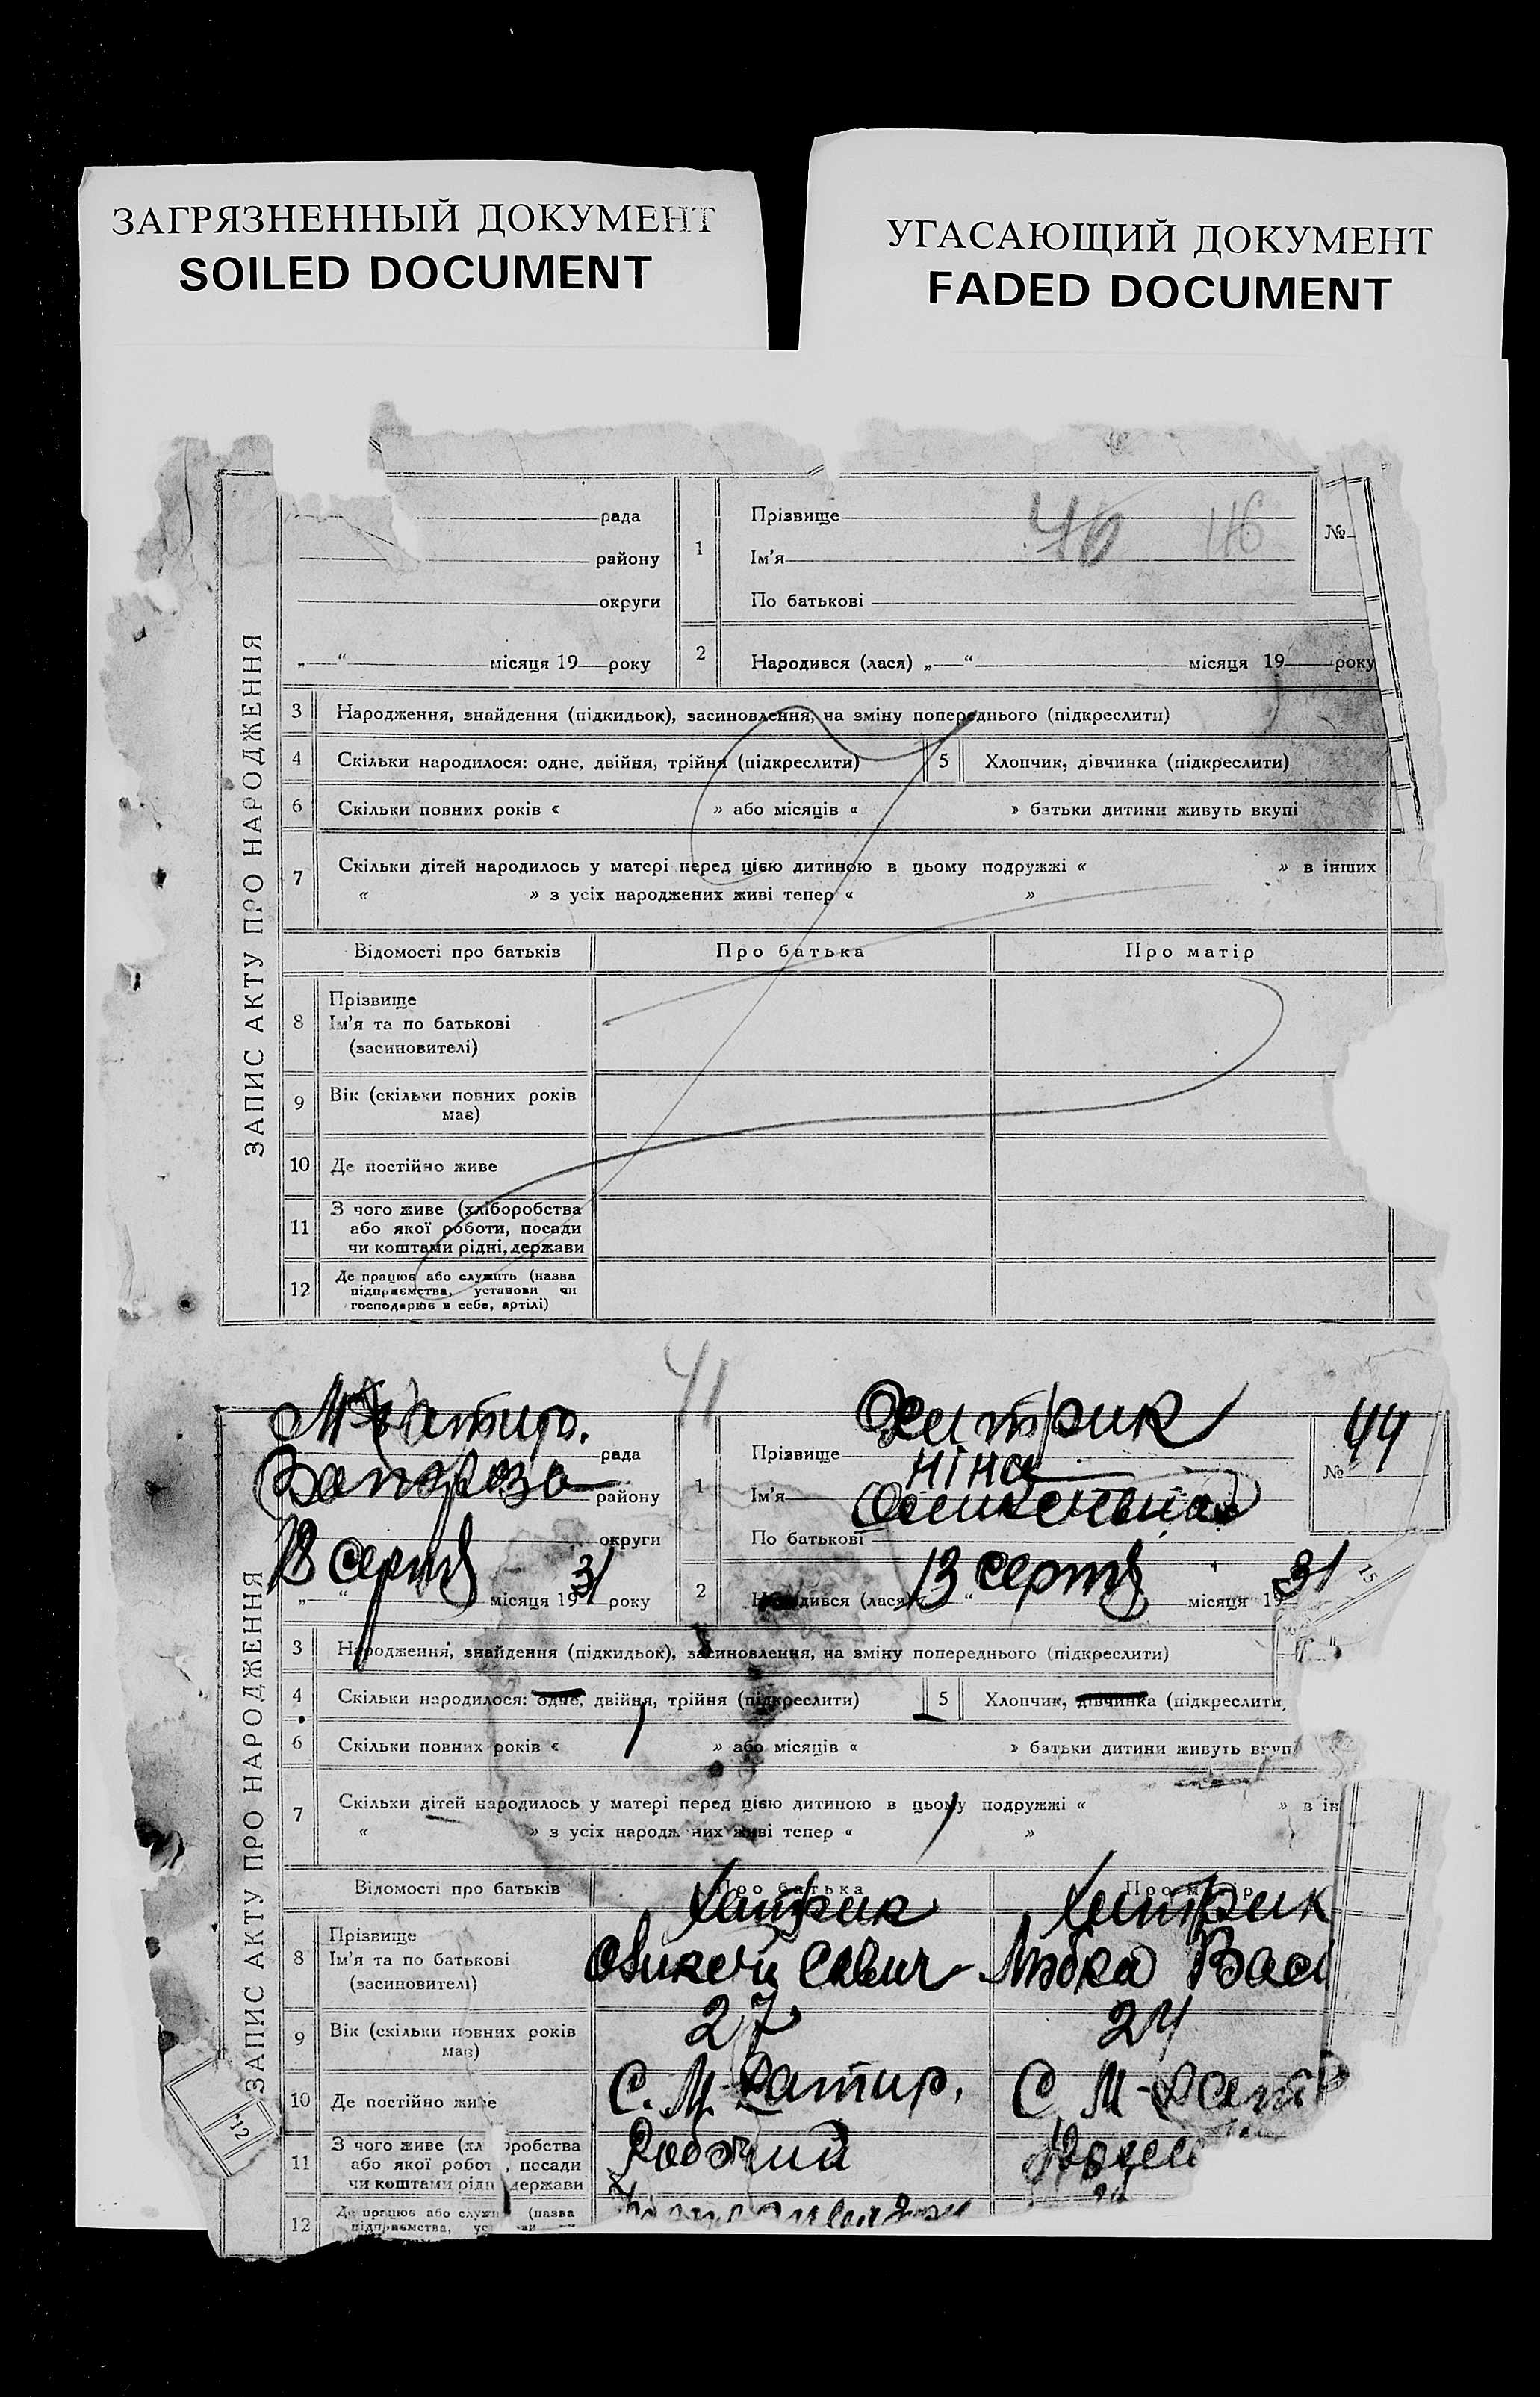 ЗАГРЯЗНЕННЫЙ ДОКУМЕНТ
SOILED DOCUMENT
УГАСАЮЩИЙ ДОКУМЕНТ
FADED DOCUMENT
ЗАПИС АКТУ ПРО НАРОДЖЕННЯ
рада
району
округи
„ “ місяця 19 року
1
Прізвище
Ім'я
По батькові
46 46
№
2 Народився (лася) „ “ місяця 19 року
3 Народження, знайдення (підкидьок), засиновлення, на зміну попереднього (підкреслити)
4 Скільки народилося: одне, двійня, трійня (підкреслити) 5 Хлопчик, дівчинка (підкреслити)
6 Скільки повних років « » або місяців « » батьки дитини живуть вкупі
7 Скільки дітей народилось у матері перед цією дитиною в цьому подружжі « » в інших
« » з усіх народжених живі тепер « »
Відомості про батьків Про батька Про матір
8 Прізвище
Ім'я та по батькові
(засиновителі)
9 Вік (скільки повних років
має)
10 Де постійно живе
11 З чого живе (хліборобства
або якої роботи, посади
чи коштами рідні, держави
12 Де працює або служить (назва
підприємства, установи чи
господарює в себе, артілі)
41
ЗАПИС АКТУ ПРО НАРОДЖЕННЯ
рада
району
округи
13 серпня місяця 1931 року
1
Прізвище Хитрик
Ім'я Ніна
По батькові
№ 44
2 Народився (лася) 13 серпня місяця 1931
3 Народження, знайдення (підкидьок), засиновлення, на зміну попереднього (підкреслити)
4 Скільки народилося: одне, двійня, трійня (підкреслити) 5 Хлопчик, дівчинка (підкреслити,
15
6 Скільки повних років « » або місяців « » батьки дитини живуть вкуп
7 Скільки дітей народилось у матері перед цією дитиною в цьому подружжі « » в ін
« » з усіх народж них живі тепер « »
Відомості про батьків Про батька Про матір
8 Прізвище Хитрик Хитрик
Ім'я та по батькові Олексій Савич Любка Вас
(засиновителі)
9 Вік (скільки повних років 27 24
має)
10 Де постійно живе С. М-
12
11 З чого живе (хл оробства Робочий
або якої робот , посади
чи коштами рідн держави
12 Де працює або служ (назва
підприємства, ус